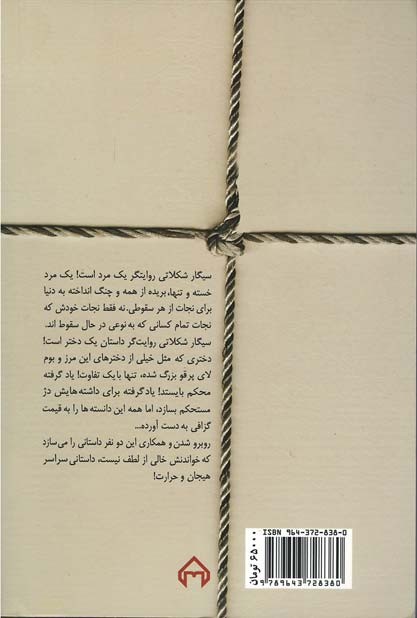 سیگار شکلاتی روایتگر یک مرد است! یک مرد
خسته و تنها، بریده از همه و چنگ انداخته به دنیا
برای نجات از هر سقوطی. نه فقط نجات خودش که
نجات تمام کسانی که به نوعی در حال سقوط اند.
سیگار شکلاتی روایت‌گر داستان یک دختر است!
دختری که مثل خیلی از دخترهای این مرز و بوم
لای پر قو بزرگ شده، تنها با یک تفاوت! یاد گرفته
محکم بایستد! یاد گرفته برای داشته‌هایش دژ
مستحکم بسازد، اما همه این دانسته ها را به قیمت
گزافی به دست آورده...
روبرو شدن و همکاری این دو نفر داستانی را می‌سازد
که خواندنش خالی از لطف نیست، داستانی سراسر
هیجان و حرارت!
ISBN 964-372-838-0
9789643728380
۶۵۰۰۰ تومان